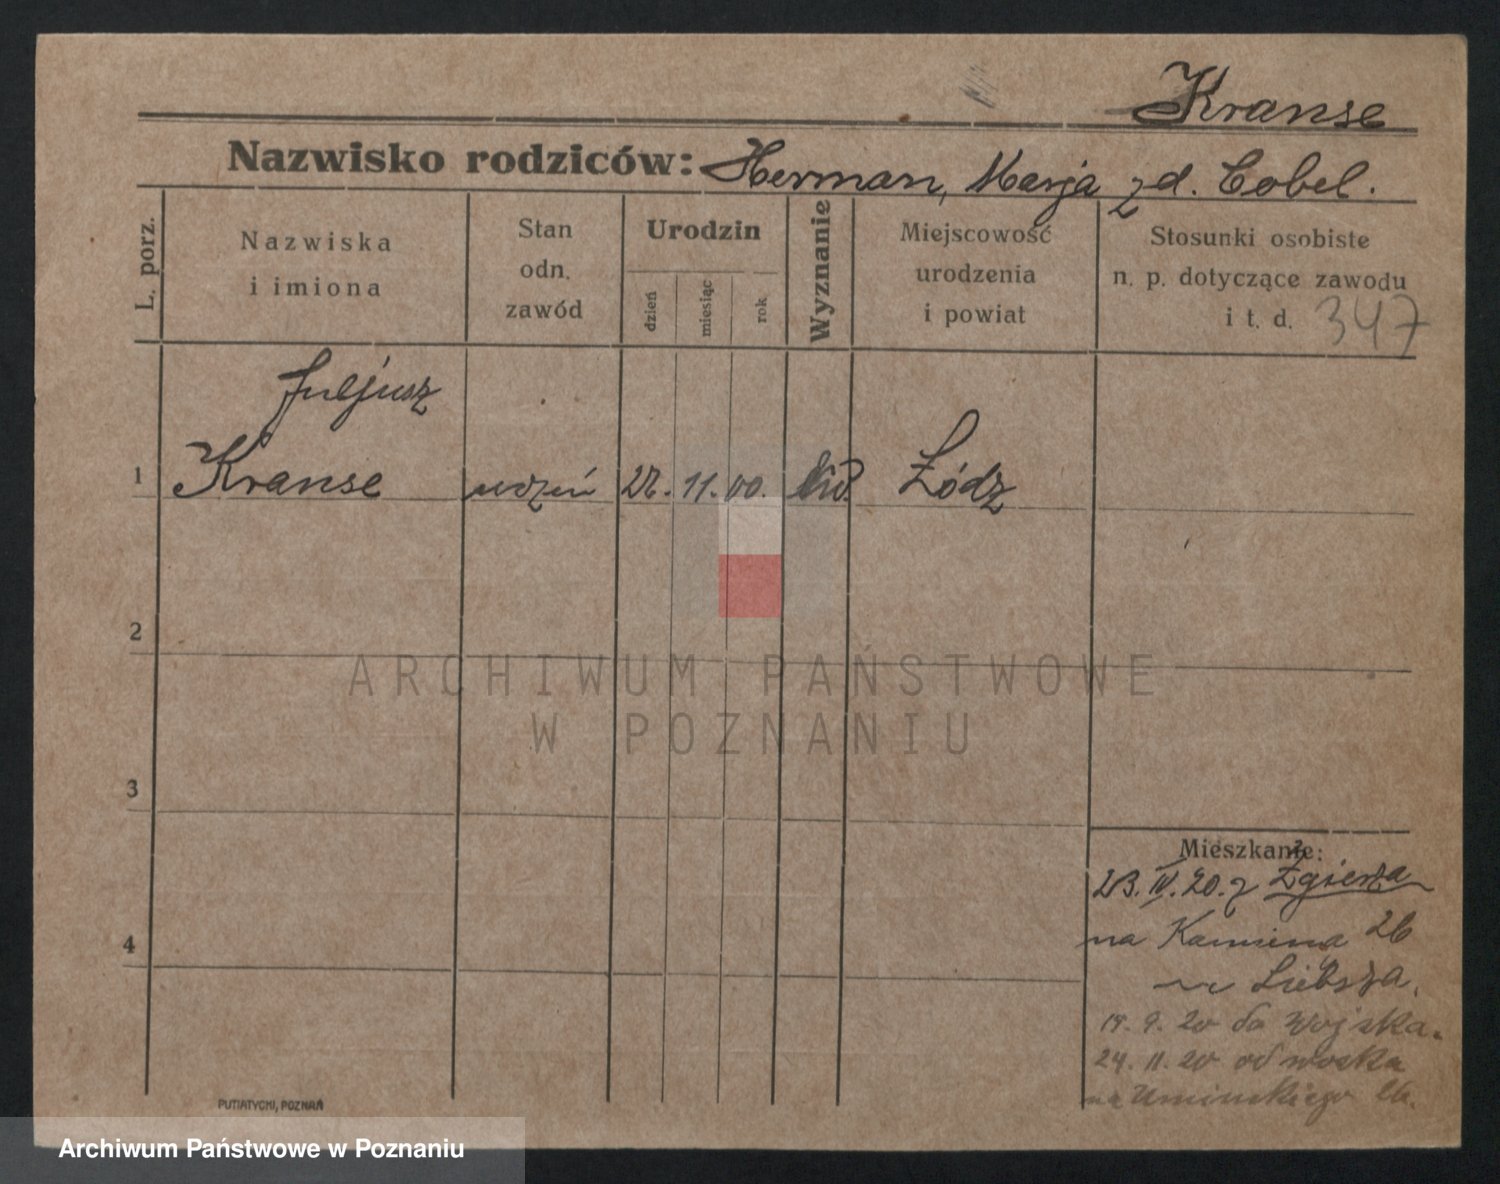 Kranse
Nazwisko rodziców: Herman, Marja zd. Cobel.
L. porz.
Nazwiska
i imiona
Stan
odn.
zawód
Urodzin
dzień
miesiąc
rok
Wyznanie
Miejscowość
urodzenia
i powiat
Stosunki osobiste
n. p. dotyczące zawodu
i t. d. 347
Juljusz
1 Kranse uczeń 22. 11. 00. Łódz
2
3
4
ARCHIWUM PAŃSTWOWE
W POZNANIU
Mieszkanie:
23. IV. 20. z Zgierza
na Kamienna 26
u Liebsza.
19. 9. 20 do Wojska.
24. 11. 20 od woska
na Umińskiego
PUTIATYCKI, POZNAŃ
Archiwum Państwowe w Poznaniu